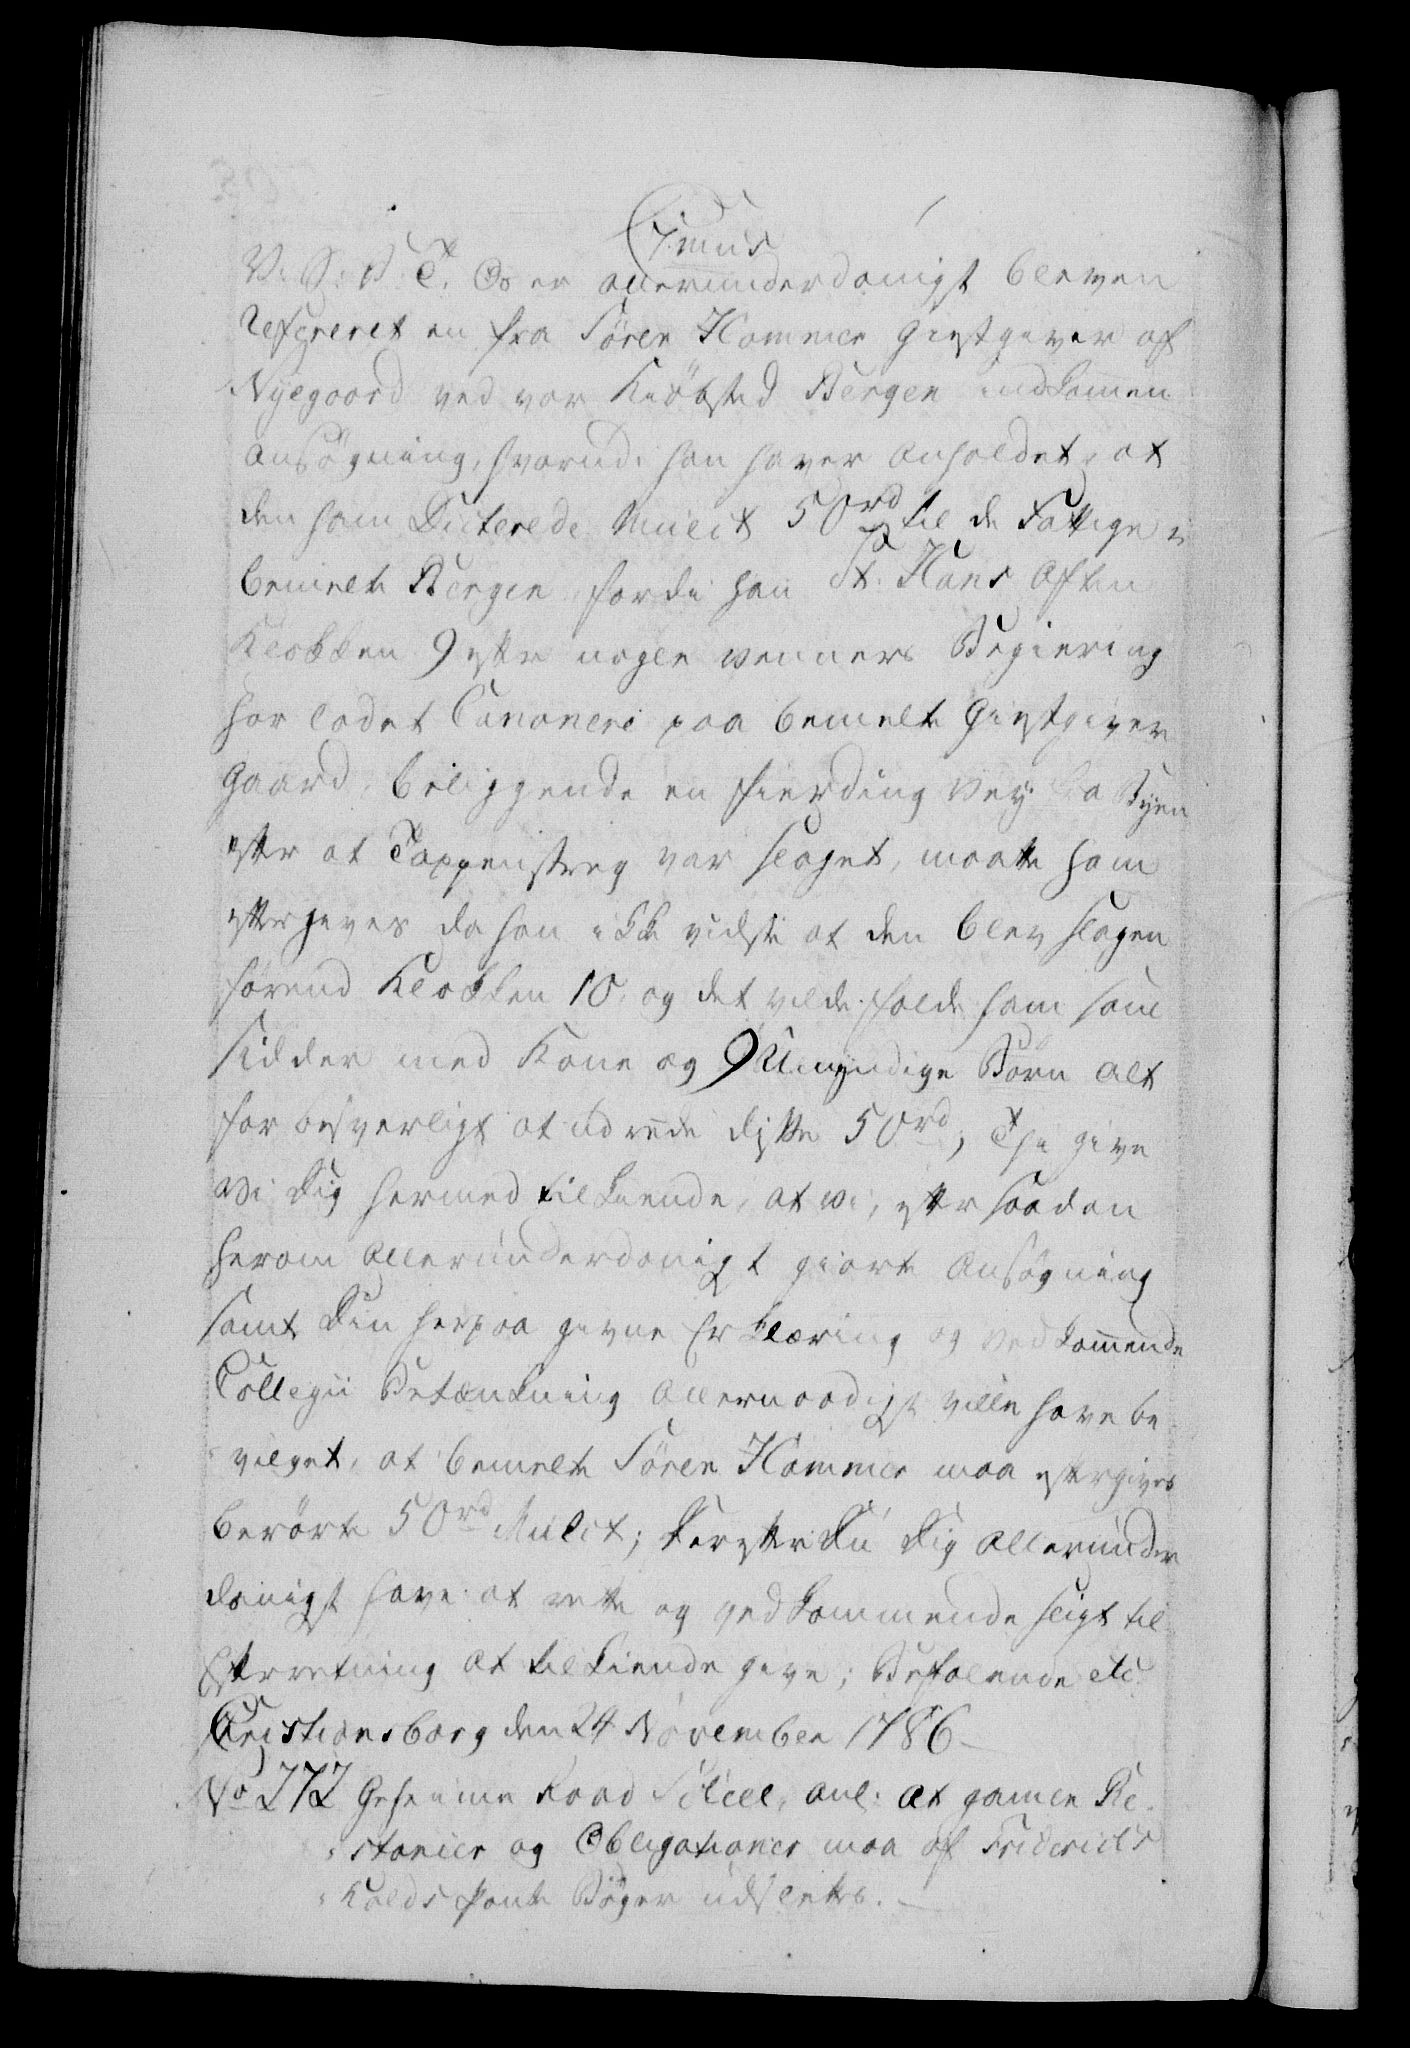 7mus
V: S: G: T. Os er allerunderdanigst bleven
Refereret en fra Søren Hammer Giestgiver af
Nyegaard ved vor Kiøbsted Bergen indkommen
Ansøgning, hvorudi han haver anholdet, at
den ham Dicterede Mulct 50 rd til de Fattige i
bemelte Bergen, fordi han St. Hans Aften
Klokken 9 efter nogle venners Begiering
har ladet Canonere paa bemelte Giestgiver
Gaard, beliggende en fierding Vey fra Byen
efter at Tappenstreg var slaget, maatte ham
eftergives da han ikke vidste at den blev slagen
førend Klokken 10, og det vilde falde ham som
sidder med Kone og 9 Umyndige Børn alt
for besverligt at udrede disse 50 rd; Thi give
Vi Dig hermed tilkiende, at vi, efter saadan
herom Allerunderdanigst giorte Ansøgning
samt Din herpaa givne Erklæring og vedkommende
Collegii Betænkning Allernaadigst ville have be
vilget, at bemelte Søren Hammer maa eftergives
berørte 50 rd Mulct; Derefter Du Dig Allerunder
danigst have at rette og vedkommende sligt til
Efterretning at tilkiende give; Befalende etc
Christiansborg den 24 November 1786
No 272 Geheime Raad Scheel, anl: at gamle Re
stancer og Obligationer maa af Friderichs
Holds Pante Bøger udslettes.